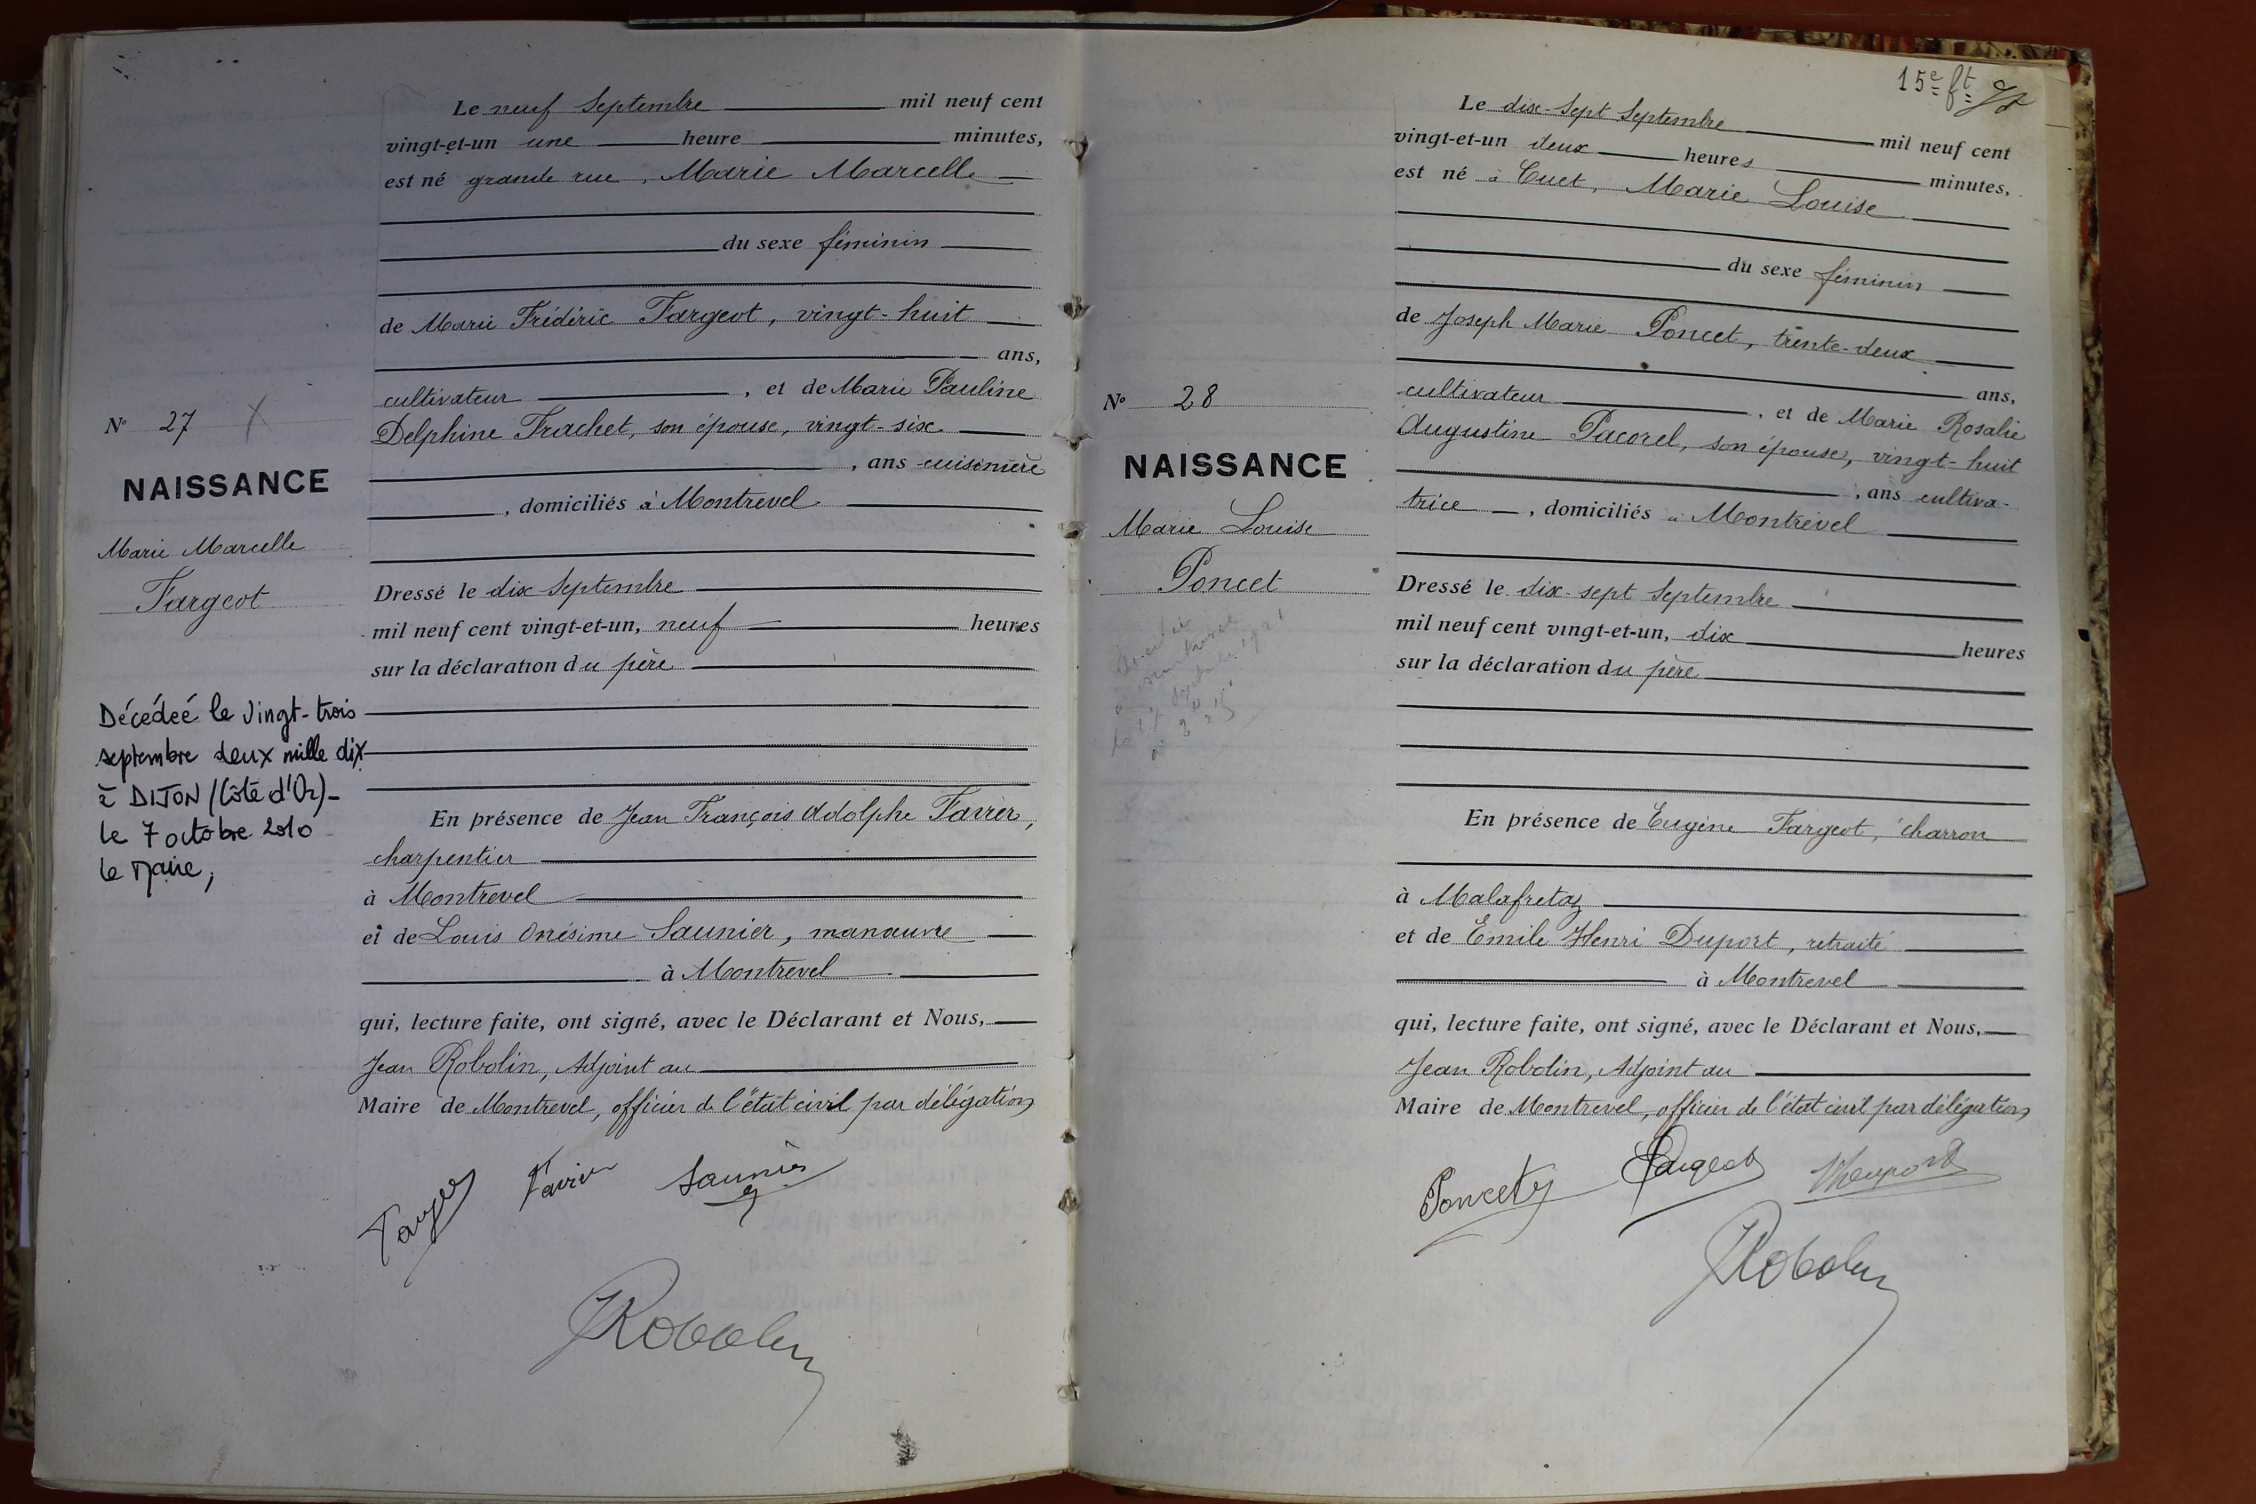 Le neuf Septembre mil neuf cent
vingt-et-un une heure minutes,
est né grande rue, Marie Marcelle
du sexe féminin
de Marie Frédéric Fargeot, vingt-huit
ans,
cultivateur, et de Marie Pauline
Delphine Frachet, son épouse, vingt-six
, ans cuisinière
, domiciliés à Montrevel
N° 27
NAISSANCE
Marie Marcelle
Fargeot
Dressé le dix Septembre
mil neuf cent vingt-et-un, neuf heures
sur la déclaration du père
Décédeé le vingt-trois
septembre deux mille dix
à DIJON (Côte d'Or)-
le 7 octobre 2010
le Maire,
En présence de Jean François Adolphe Favier,
charpentier
à Montrevel
et de Louis Onésime Saunier, manœuvre
à Montrevel
qui, lecture faite, ont signé, avec le Déclarant et Nous,
Jean Robolin, Adjoint au
Maire de Montrevel, officier de l'état civil par délégation
Favier Saunier
JRobolin
15e ft
Le dix-sept Septembre mil neuf cent
vingt-et-un deux heures minutes,
est né à Cuet, Marie Louise
du sexe féminin
de Joseph Marie Poncet, trente-deux
ans,
cultivateur, et de Marie Rosalie
Augustine Pacorel, son épouse, vingt-huit
, ans cultiva-
trice, domiciliés à Montrevel
N° 28
NAISSANCE
Marie Louise
Poncet
Dressé le dix-sept Septembre
mil neuf cent vingt-et-un, dix heures
sur la déclaration du père
En présence de Eugène Fargeot, charron
à Malafretaz
et de Emile Henri Duport, retraité
à Montrevel
qui, lecture faite, ont signé, avec le Déclarant et Nous,
Jean Robolin, Adjoint au
Maire de Montrevel, officier de l'état civil par délégation
Poncet Fargeot HDuport
JRobolin